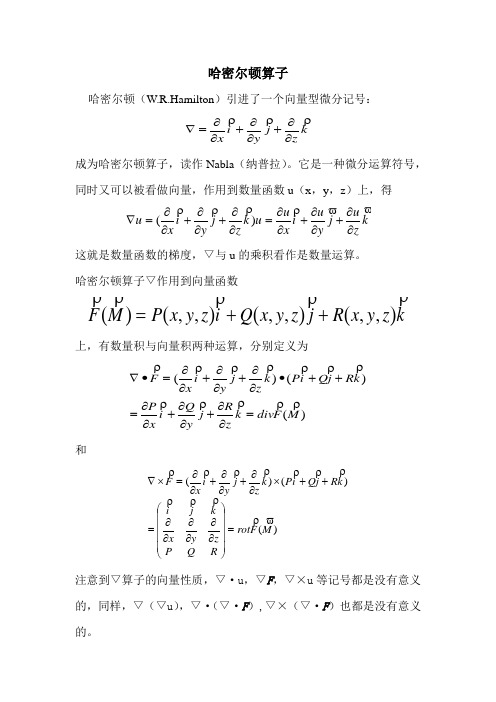 哈密尔顿算子
哈密尔顿（W.R.Hamilton）引进了一个向量型微分记号：
∇ = ∂/∂x i + ∂/∂y j + ∂/∂z k
成为哈密尔顿算子，读作 Nabla（纳普拉）。它是一种微分运算符号，
同时又可以被看做向量，作用到数量函数 u（x，y，z）上，得
∇u = (∂/∂x i + ∂/∂y j + ∂/∂z k)u = ∂u/∂x i + ∂u/∂y j + ∂u/∂z k
这就是数量函数的梯度，▽与 u 的乘积看作是数量运算。
哈密尔顿算子▽作用到向量函数
F(M) = P(x, y, z)i + Q(x, y, z)j + R(x, y, z)k
上，有数量积与向量积两种运算，分别定义为
∇ • F = (∂/∂x i + ∂/∂y j + ∂/∂z k) • (Pi + Qj + Rk)
= ∂P/∂x i + ∂Q/∂y j + ∂R/∂z k = divF(M)
和
∇ × F = (∂/∂x i + ∂/∂y j + ∂/∂z k) × (Pi + Qj + Rk)
= ( i j k
∂/∂x ∂/∂y ∂/∂z
P Q R ) = rotF(M)
注意到▽算子的向量性质，▽·u，▽F，▽×u 等记号都是没有意义
的，同样，▽（▽u），▽·（▽·F）,▽×（▽·F）也都是没有意义
的。